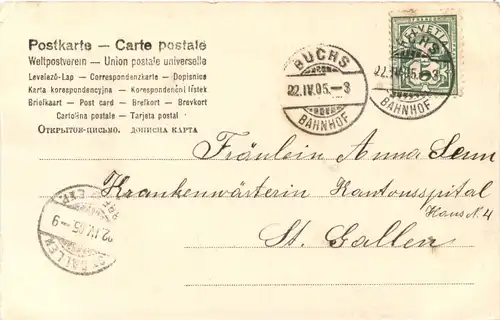 Postkarte — Carte postale
Weltpostverein — Union postale universelle
Levelező-Lap — Correspondenzkarte — Dopisnice
Karta korespondencyjna — Korespondenční lístek
Briefkaart — Post card — Brefkort — Brevkort
Cartolina postale — Tarjeta postal
Открытое-письмо. дописна карта
BUCHS
22.IV.05.-3
BAHNHOF
HELVETIA
BUCHS
22.IV.05.-3
BAHNHOF
Fräulein Anna Senn
Krankenwärterin Kantonsspital
Haus N. 4
St. Gallen
ST. GALLEN
22.IV.05-9
BRF. EXP.